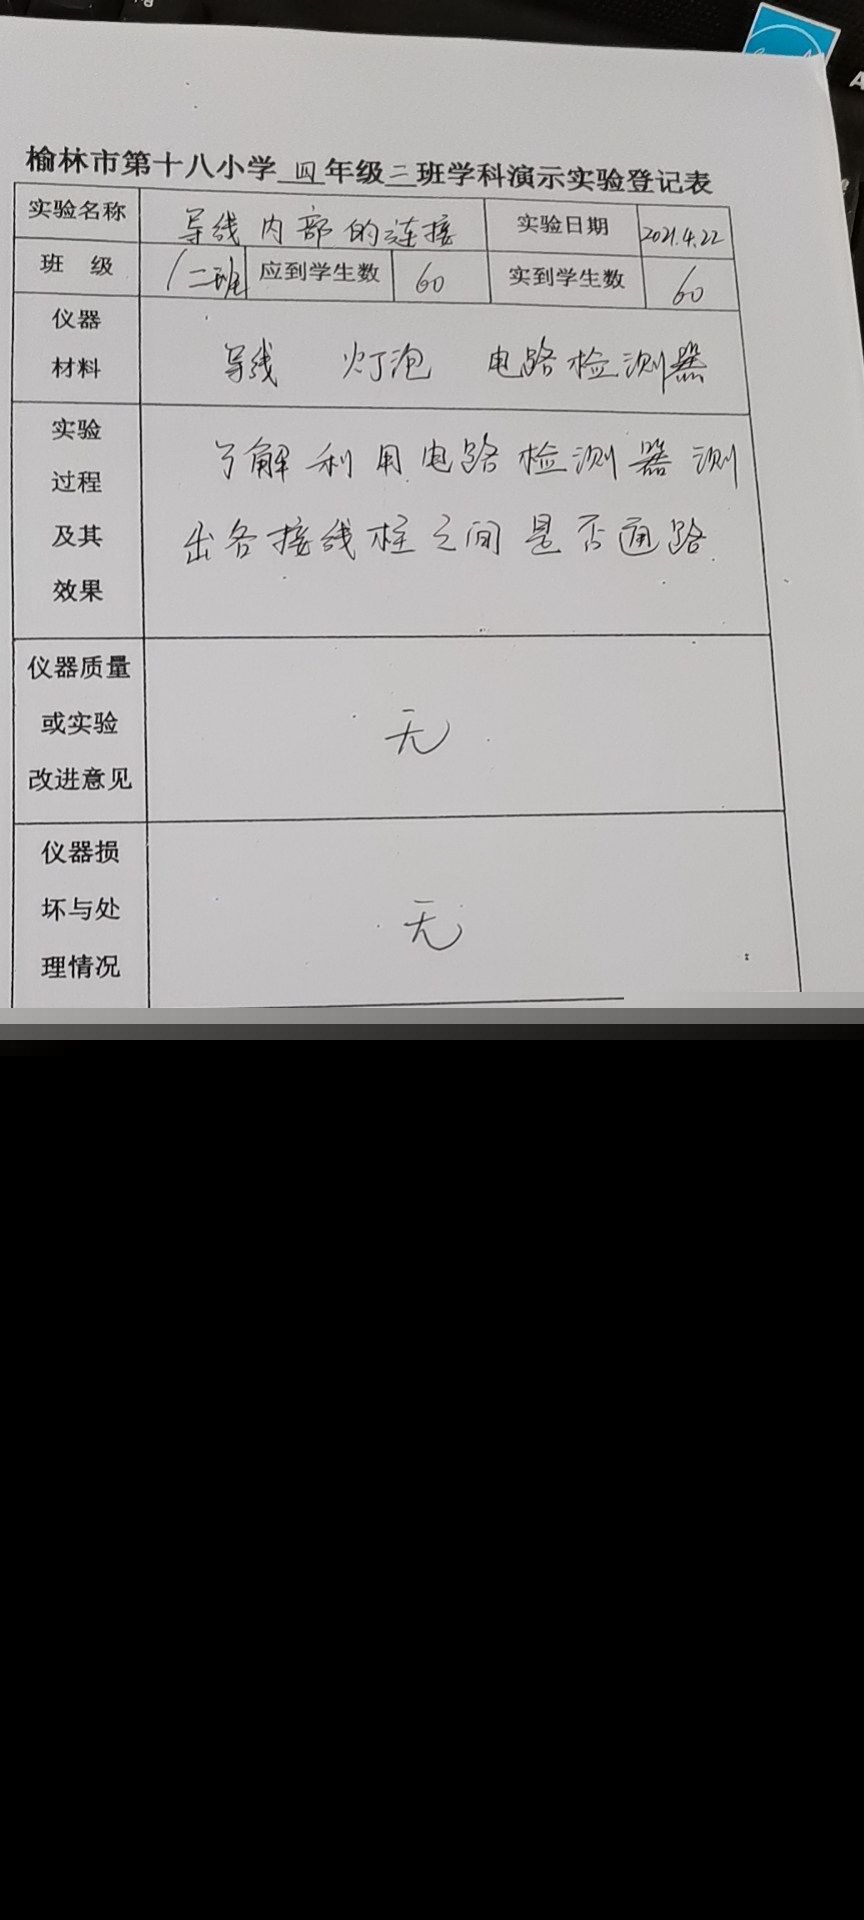 榆林市第十八小学 四 年级 二 班学科演示实验登记表
实验名称 导线内部的连接 实验日期 2021.4.22
班 级 (二班 应到学生数 60 实到学生数 60
仪器
材料
导线 灯泡 电路检测器
实验
过程
及其
效果
了解利用电路检测器测
出各接线柱之间是否通路.
仪器质量
或实验
改进意见
无
仪器损
坏与处
理情况
无